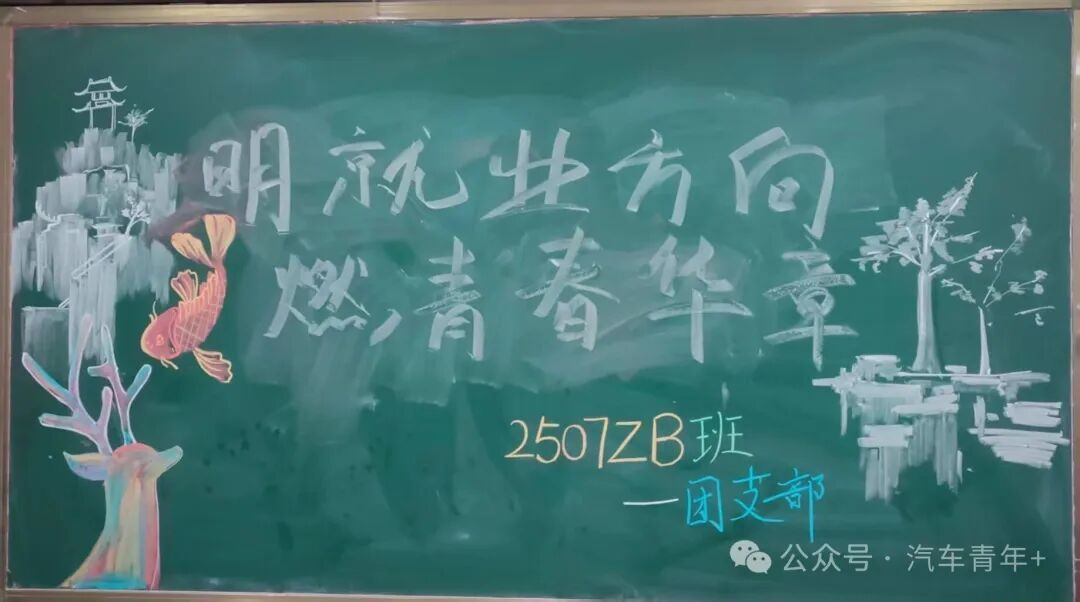 明就业方向
燃青春华章
2507ZB班
—团支部
公众号·汽车青年+